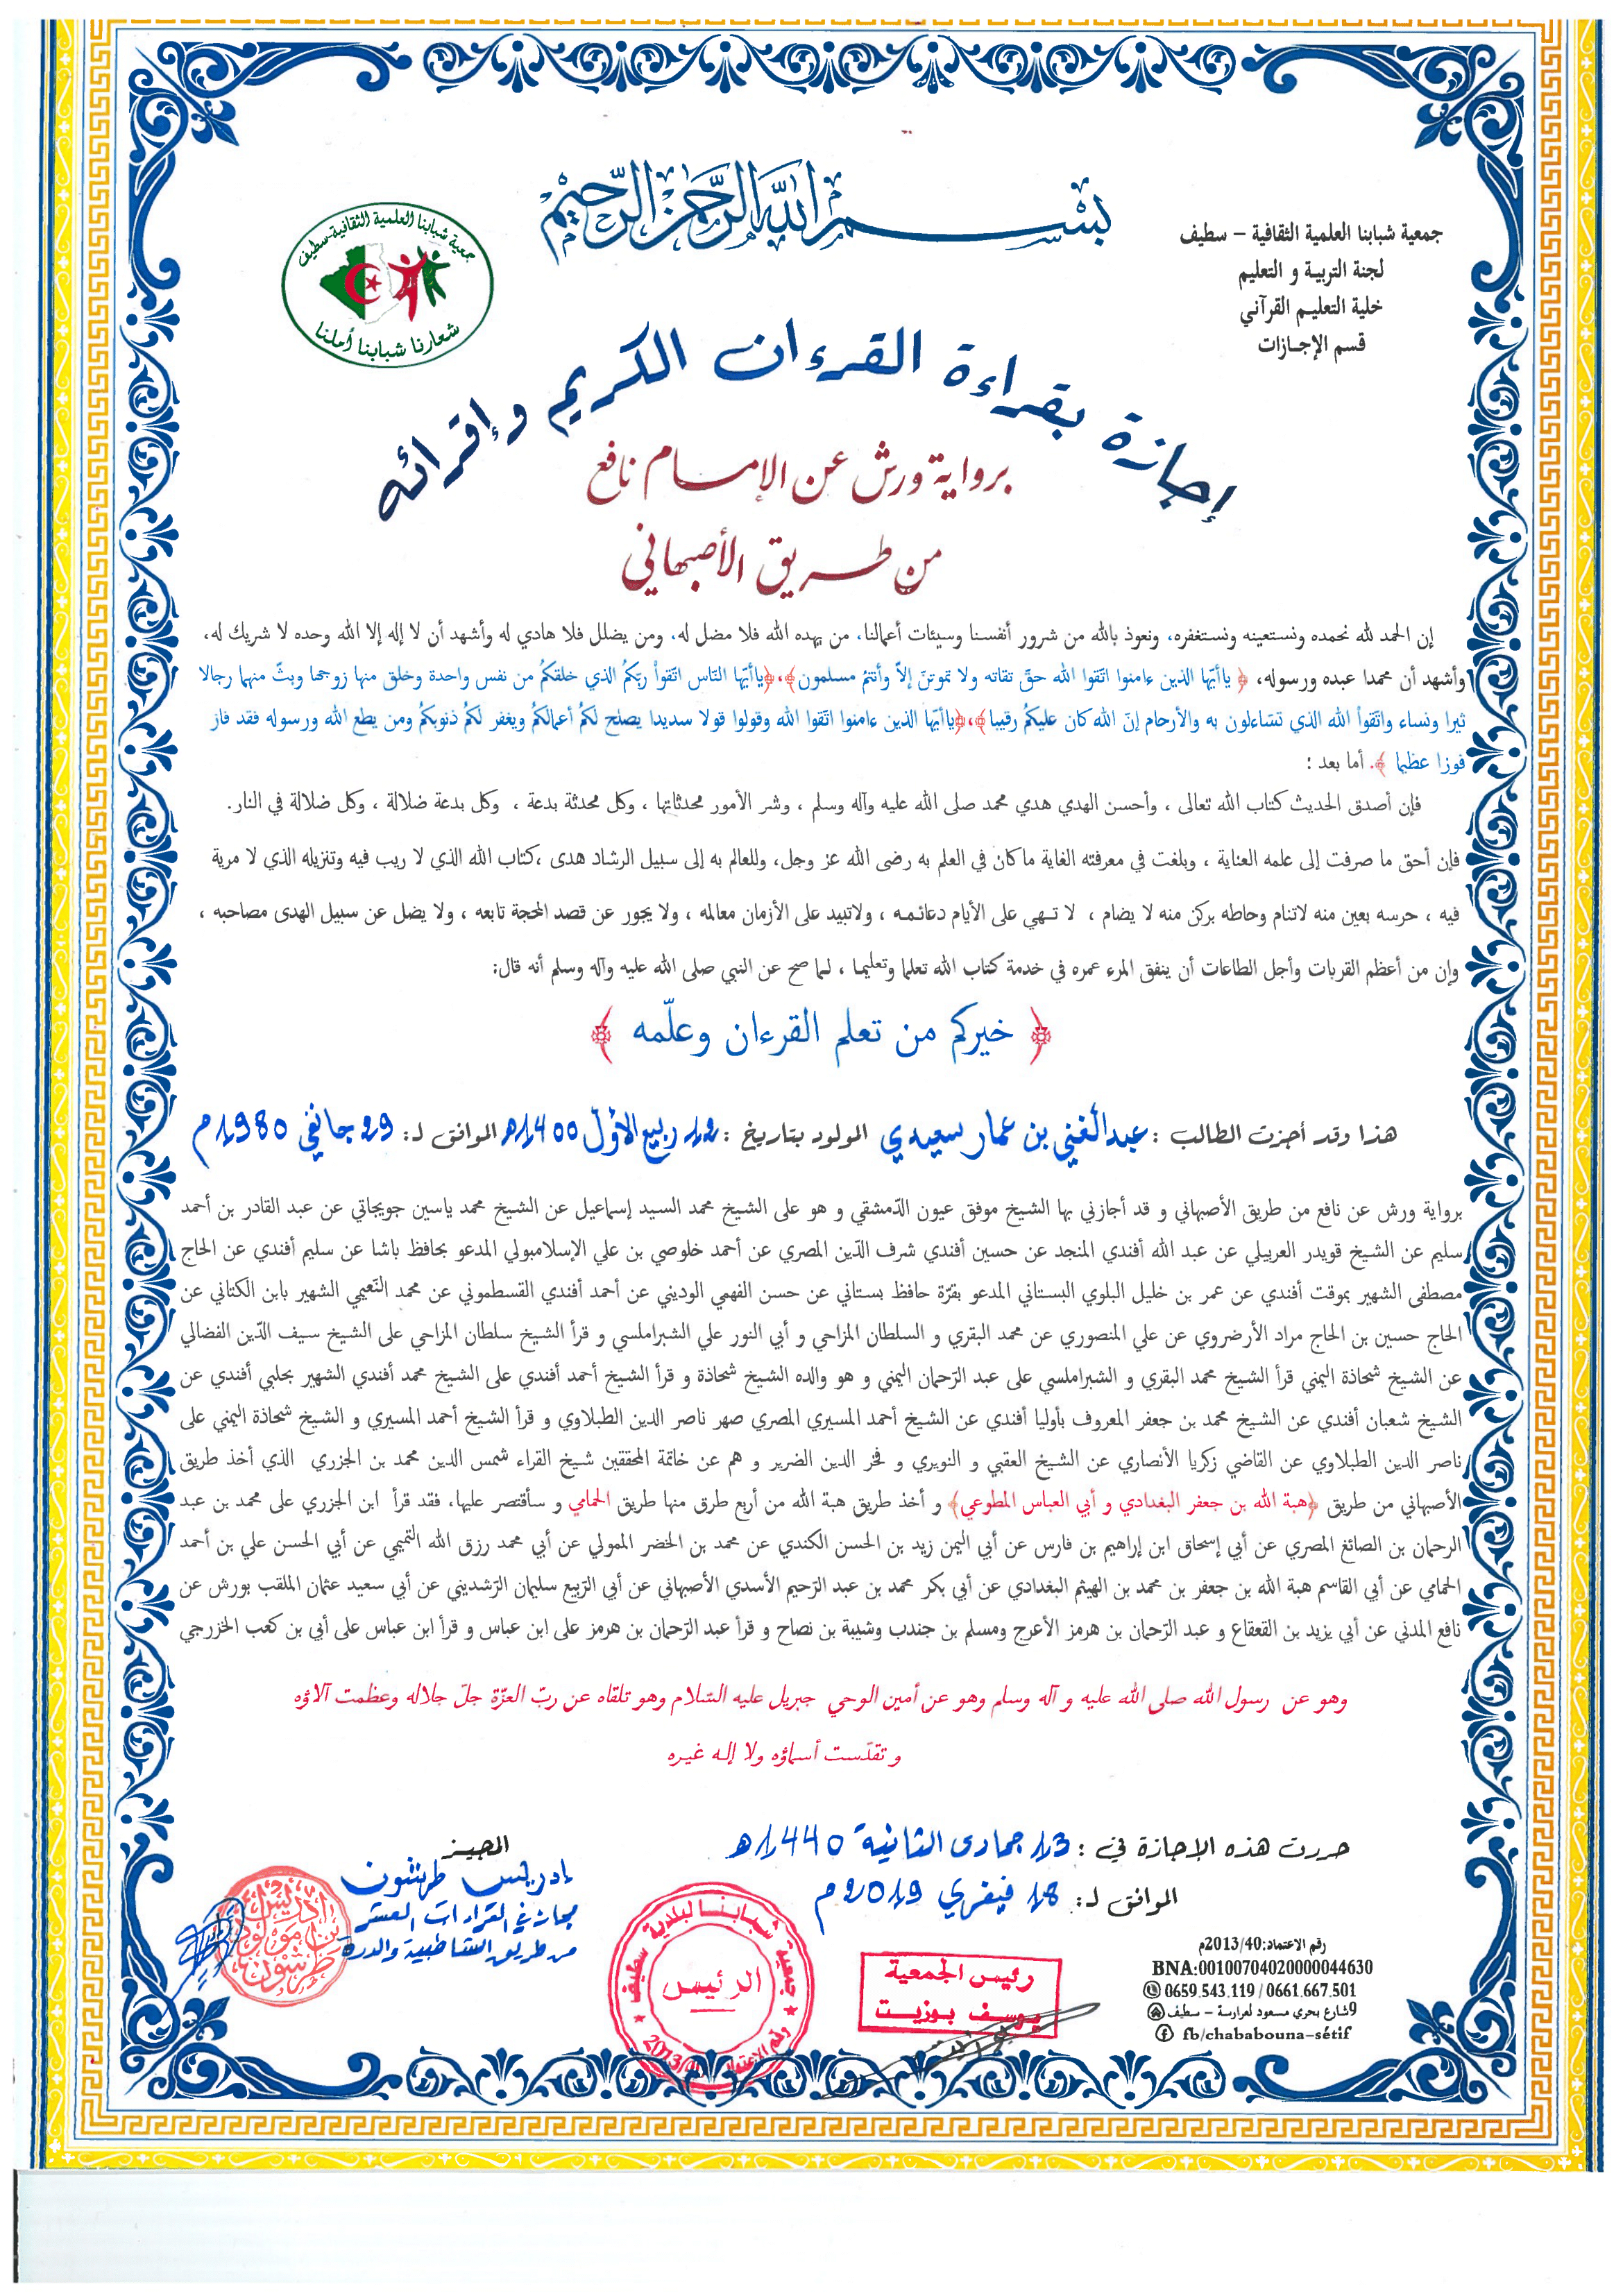 بسم الله الرحمن الرحيم
جمعية شبابنا العلمية الثقافية - سطيف
لجنة التربية و التعليم
خلية التعليم القرآني
قسم الإجازات
جمعية شبابنا العلمية الثقافية-سطيف
شعارنا شبابنا أملنا
إجازة بقراءة القرءان الكريم وإقرائه
برواية ورش عن الإمام نافع
من طريق الأصبهاني
إن الحمد لله نحمده ونستعينه ونستغفره، ونعوذ بالله من شرور أنفسنا وسيئات أعمالنا، من يهده الله فلا مضل له، ومن يضلل فلا هادي له وأشهد أن لا إله إلا الله وحده لا شريك له،
وأشهد أن محمدا عبده ورسوله، ﴿ ياأيّها الذين ءامنوا اتّقوا الله حقّ تقاته ولا تموتنّ إلاّ وأنتمُ مسلمون﴾،﴿ياأيّها النّاس اتّقواْ ربّكمُ الذي خلقكمُ من نفس واحدة وخلق منها زوجها وبثّ منهما رجالا
ثيرا ونساء واتّقواْ الله الذي تسّاءلون به والأرحام إنّ الله كان عليكمُ رقيبا﴾،﴿ياأيّها الذين ءامنوا اتّقوا الله وقولوا قولا سديدا يصلح لكمُ أعمالكمُ ويغفر لكمُ ذنوبكمُ ومن يطع الله ورسوله فقد فاز
فوزا عظيما ﴾. أما بعد :
فإن أصدق الحديث كتاب الله تعالى ، وأحسن الهدي هدي محمد صلى الله عليه وآله وسلم ، وشر الأمور محدثاتها ، وكل محدثة بدعة ، وكل بدعة ضلالة ، وكل ضلالة في النار.
فإن أحق ما صرفت إلى علمه العناية ، وبلغت في معرفته الغاية ماكان في العلم به رضى الله عز وجل، وللعالم به إلى سبيل الرشاد هدى ،كتاب الله الذي لا ريب فيه وتنزيله الذي لا مرية
فيه ، حرسه بعين منه لاتنام وحاطه بركن منه لا يضام ، لا تـهي على الأيام دعائمـه ، ولاتبيد على الأزمان معالمه ، ولا يجور عن قصد المحجة تابعه ، ولا يضل عن سبيل الهدى مصاحبه ،
وإن من أعظم القربات وأجل الطاعات أن ينفق المرء عمره في خدمة كتاب الله تعلما وتعليما ، لـما صح عن النبي صلى الله عليه وآله وسلم أنه قال:
﴿ خيركم من تعلم القرءان وعلّمه ﴾
هذا وقد أجزت الطالب : عبد الغني بن عمار سعيدي المولود بتاريخ : 12 ربيع الأوّل 1400هـ الموافق لـ: 29 جانفي 1980م
برواية ورش عن نافع من طريق الأصبهاني و قد أجازني بها الشيخ موفق عيون الدّمشقي و هو على الشيخ محمد السيد إسماعيل عن الشيخ محمد ياسين جويجاتي عن عبد القادر بن أحمد
سليم عن الشيخ قويدر العربيلي عن عبد الله أفندي المنجد عن حسين أفندي شرف الدّين المصري عن أحمد خلوصي بن علي الإسلامبولي المدعو بحافظ باشا عن سليم أفندي عن الحاج
مصطفى الشهير بموقت أفندي عن عمر بن خليل البلوي البستاني المدعو بقرّة حافظ بستاني عن حسن الفهمي الوديني عن أحمد أفندي القسطموني عن محمد النّعيمي الشهير بابن الكتاني عن
الحاج حسين بن الحاج مراد الأرضروي عن علي المنصوري عن محمد البقري و السلطان المزاحي و أبي النور علي الشبراملسي و قرأ الشيخ سلطان المزاحي على الشيخ سيف الدّين الفضالي
عن الشيخ شحاذة اليمني قرأ الشيخ محمد البقري و الشبراملسي على عبد الرّحمان اليمني و هو والده الشيخ شحاذة و قرأ الشيخ أحمد أفندي على الشيخ محمد أفندي الشهير بحلبي أفندي عن
الشيخ شعبان أفندي عن الشيخ محمد بن جعفر المعروف بأوليا أفندي عن الشيخ أحمد المسيري المصري صهر ناصر الدين الطبلاوي و قرأ الشيخ أحمد المسيري و الشيخ شحاذة اليمني على
ناصر الدين الطبلاوي عن القاضي زكريا الأنصاري عن الشيخ العقبي و النويري و فخر الدين الضرير و هم عن خاتمة المحققين شيخ القراء شمس الدين محمد بن الجزري الذي أخذ طريق
الأصبهاني من طريق ﴿هبة الله بن جعفر البغدادي و أبي العباس المطوعي﴾ و أخذ طريق هبة الله من أربع طرق منها طريق الحمامي و سأقتصر عليها، فقد قرأ ابن الجزري على محمد بن عبد
الرحمان بن الصائغ المصري عن أبي إسحاق ابن إبراهيم بن فارس عن أبي اليمن زيد بن الحسن الكندي عن محمد بن الخضر الممولي عن أبي محمد رزق الله التميمي عن أبي الحسن علي بن أحمد
الحمامي عن أبي القاسم هبة الله بن جعفر بن محمد بن الهيثم البغدادي عن أبي بكر محمد بن عبد الرّحيم الأسدي الأصبهاني عن أبي الرّبيع سليمان الرّشديني عن أبي سعيد عثمان الملقب بورش عن
نافع المدني عن أبي يزيد بن القعقاع و عبد الرّحمان بن هرمز الأعرج ومسلم بن جندب وشيبة بن نصاح و قرأ عبد الرّحمان بن هرمز على ابن عباس و قرأ ابن عباس على أبي بن كعب الخزرجي
وهو عن رسول الله صلى الله عليه و آله وسلم وهو عن أمين الوحي جبريل عليه السّلام وهو تلقّاه عن ربّ العزّة جلّ جلاله وعظمت آلاؤه
و تقدّست أسماؤه ولا إله غيره
حررت هذه الإجازة في : 13 جمادى الثانية 1440هـ
الموافق لـ: 18 فيفري 2019م
المجيز
إدريس طرشون
مجاز في القراءات العشر
من طريق الشاطبية والدرة
إدريس بن مولود طرشون
جمعية شبابنا لبلدية سطيف
الرئيس
رقم الاعتماد 2013/40
رئيس الجمعية
يوسف بوزيت
رقم الاعتماد:2013/40م
BNA:00100704020000044630
0659.543.119 / 0661.667.501
9شارع بحري مسعود لعرارسة - سطيف
fb/chababouna-sétif